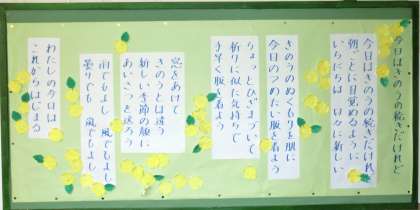 今日はきのうの続きだけれど
今日はきのうの続きだけれど
朝ごとに目覚めるように
いのちは 日々に新しい
きのうのぬくもりを肌に
今日のつめたい服を着よう
ちょっとひざまづいて
祈りに似た気持ちで
手早く服を着よう
窓をあけて
きのうとは違う
新しい季節の旅に
あいさつを送ろう
雨でもよし 風でもよし
曇りでも 嵐でもよし
わたしの今日は
これからはじまる